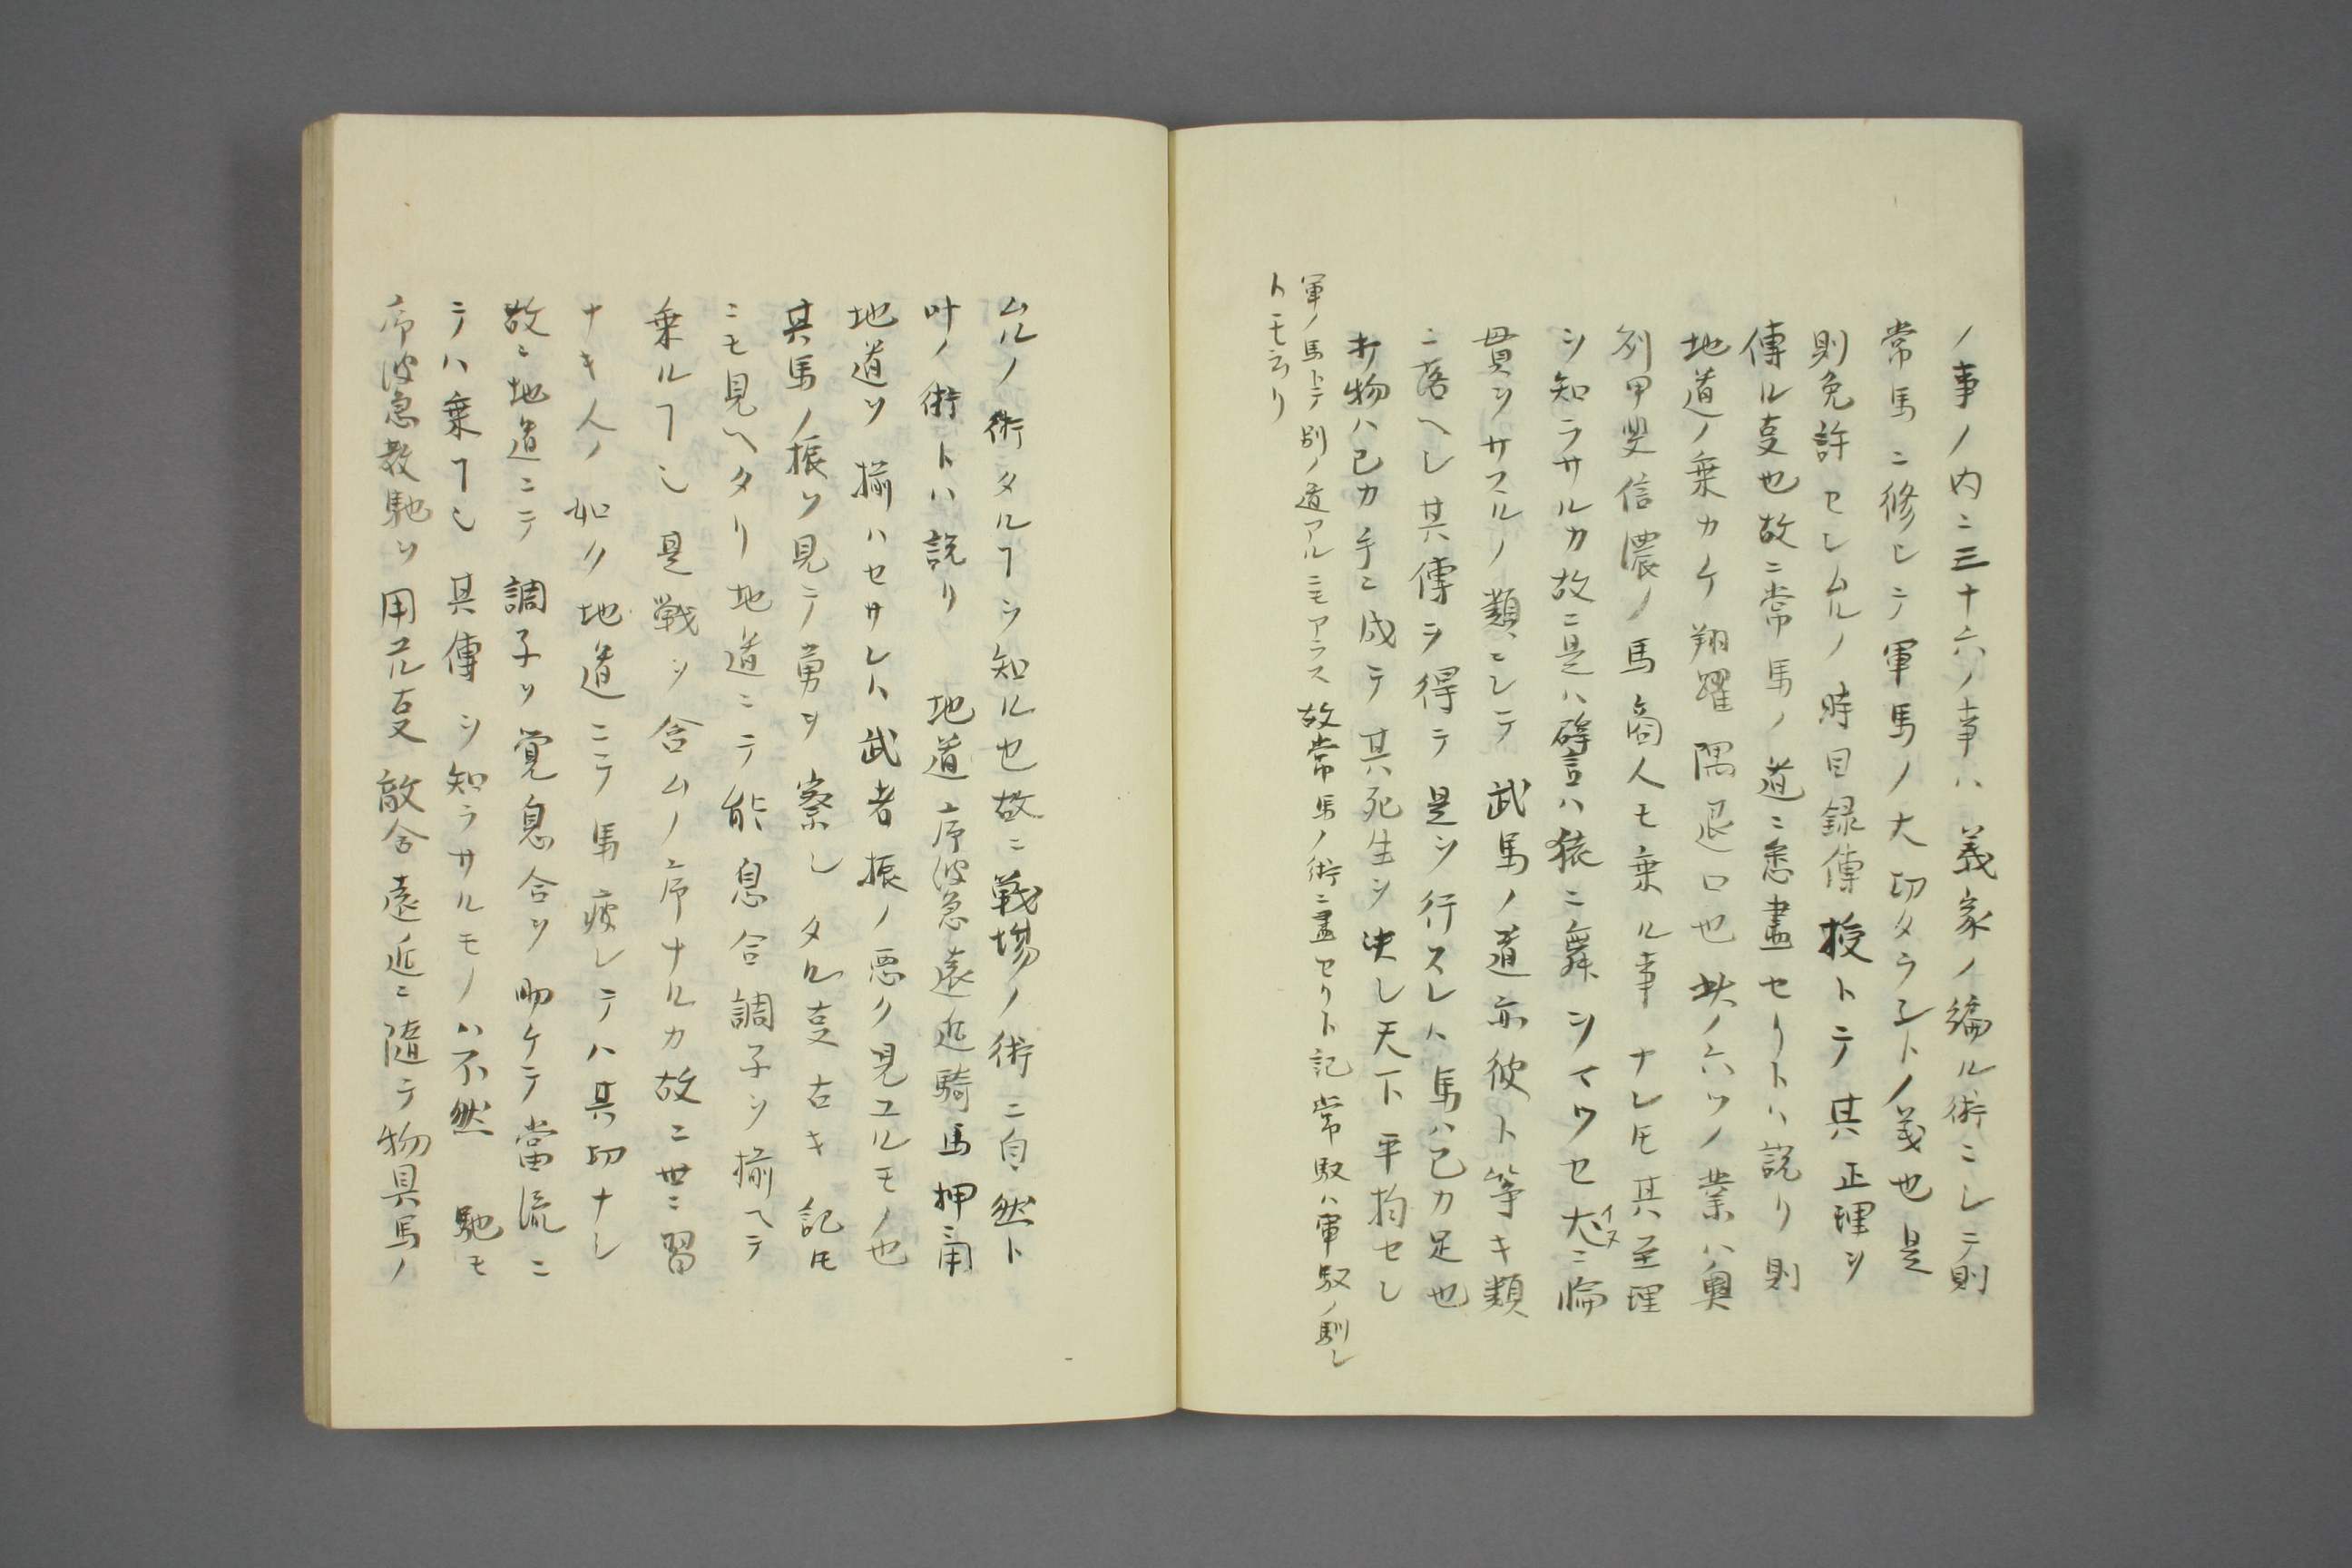 ノ事ノ内ニ三十六ノ事ハ義家ノ編ル術ニシテ則
常馬ニ修シテ軍馬ノ大切タラントノ義也是
則免許セシムルノ時目録傳授トテ其正理ヲ
傳ル㕝也故ニ常馬ノ道ニ悉盡セリトハ説リ則
地道ノ乗カケ翔躍隅退口也此ノ六ツノ業ハ奥
列甲斐信濃ノ馬商人モ乗ル事ナレ𪜈其至理
ヲ知ラサルカ故ニ是ハ譬ハ猿ニ舞ヲマワセ犬イヌニ輪
貫ヲサスルノ類ニシテ武馬ノ道亦彼ト等キ類
ニ落ヘシ其傳ヲ得テ是ヲ行スレハ馬ハ己カ足也
打物ハ己カ手ニ成テ其死生ヲ決シ天下平均セシ
軍ノ馬トテ別ノ道アルニモアラス故常馬ノ術ニ盡セリト記常馭ハ軍馭ノ馴シ
トモ云リ
ムルノ術タルヿヲ知ル也故ニ戦場ノ術ニ自然ト
叶ノ術トハ説リ　地道序波急遠近騎馬押ニ用
地道ヲ揃ハセサレハ武者振ノ悪ク見ユルモノ也
其馬ノ振ヲ見テ勇ヲ察シタル㕝古キ記𪜈
ニモ見ヘタリ地道ニテ能息合調子ヲ揃ヘテ
乗ルヿ也是戦ヲ含ムノ序ナルカ故ニ世ニ習
ナキ人ノ如ク地道ニテ馬疲レテハ其切ナシ
故ニ地道ニテ調子ヲ覚息合ヲ助ケテ當流ニ
テハ乗ヿ也其傳ヲ知ラサルモノハ不然　馳モ
序波急数馳ヲ用ユル㕝敵合遠近ニ隨テ物具馬ノ